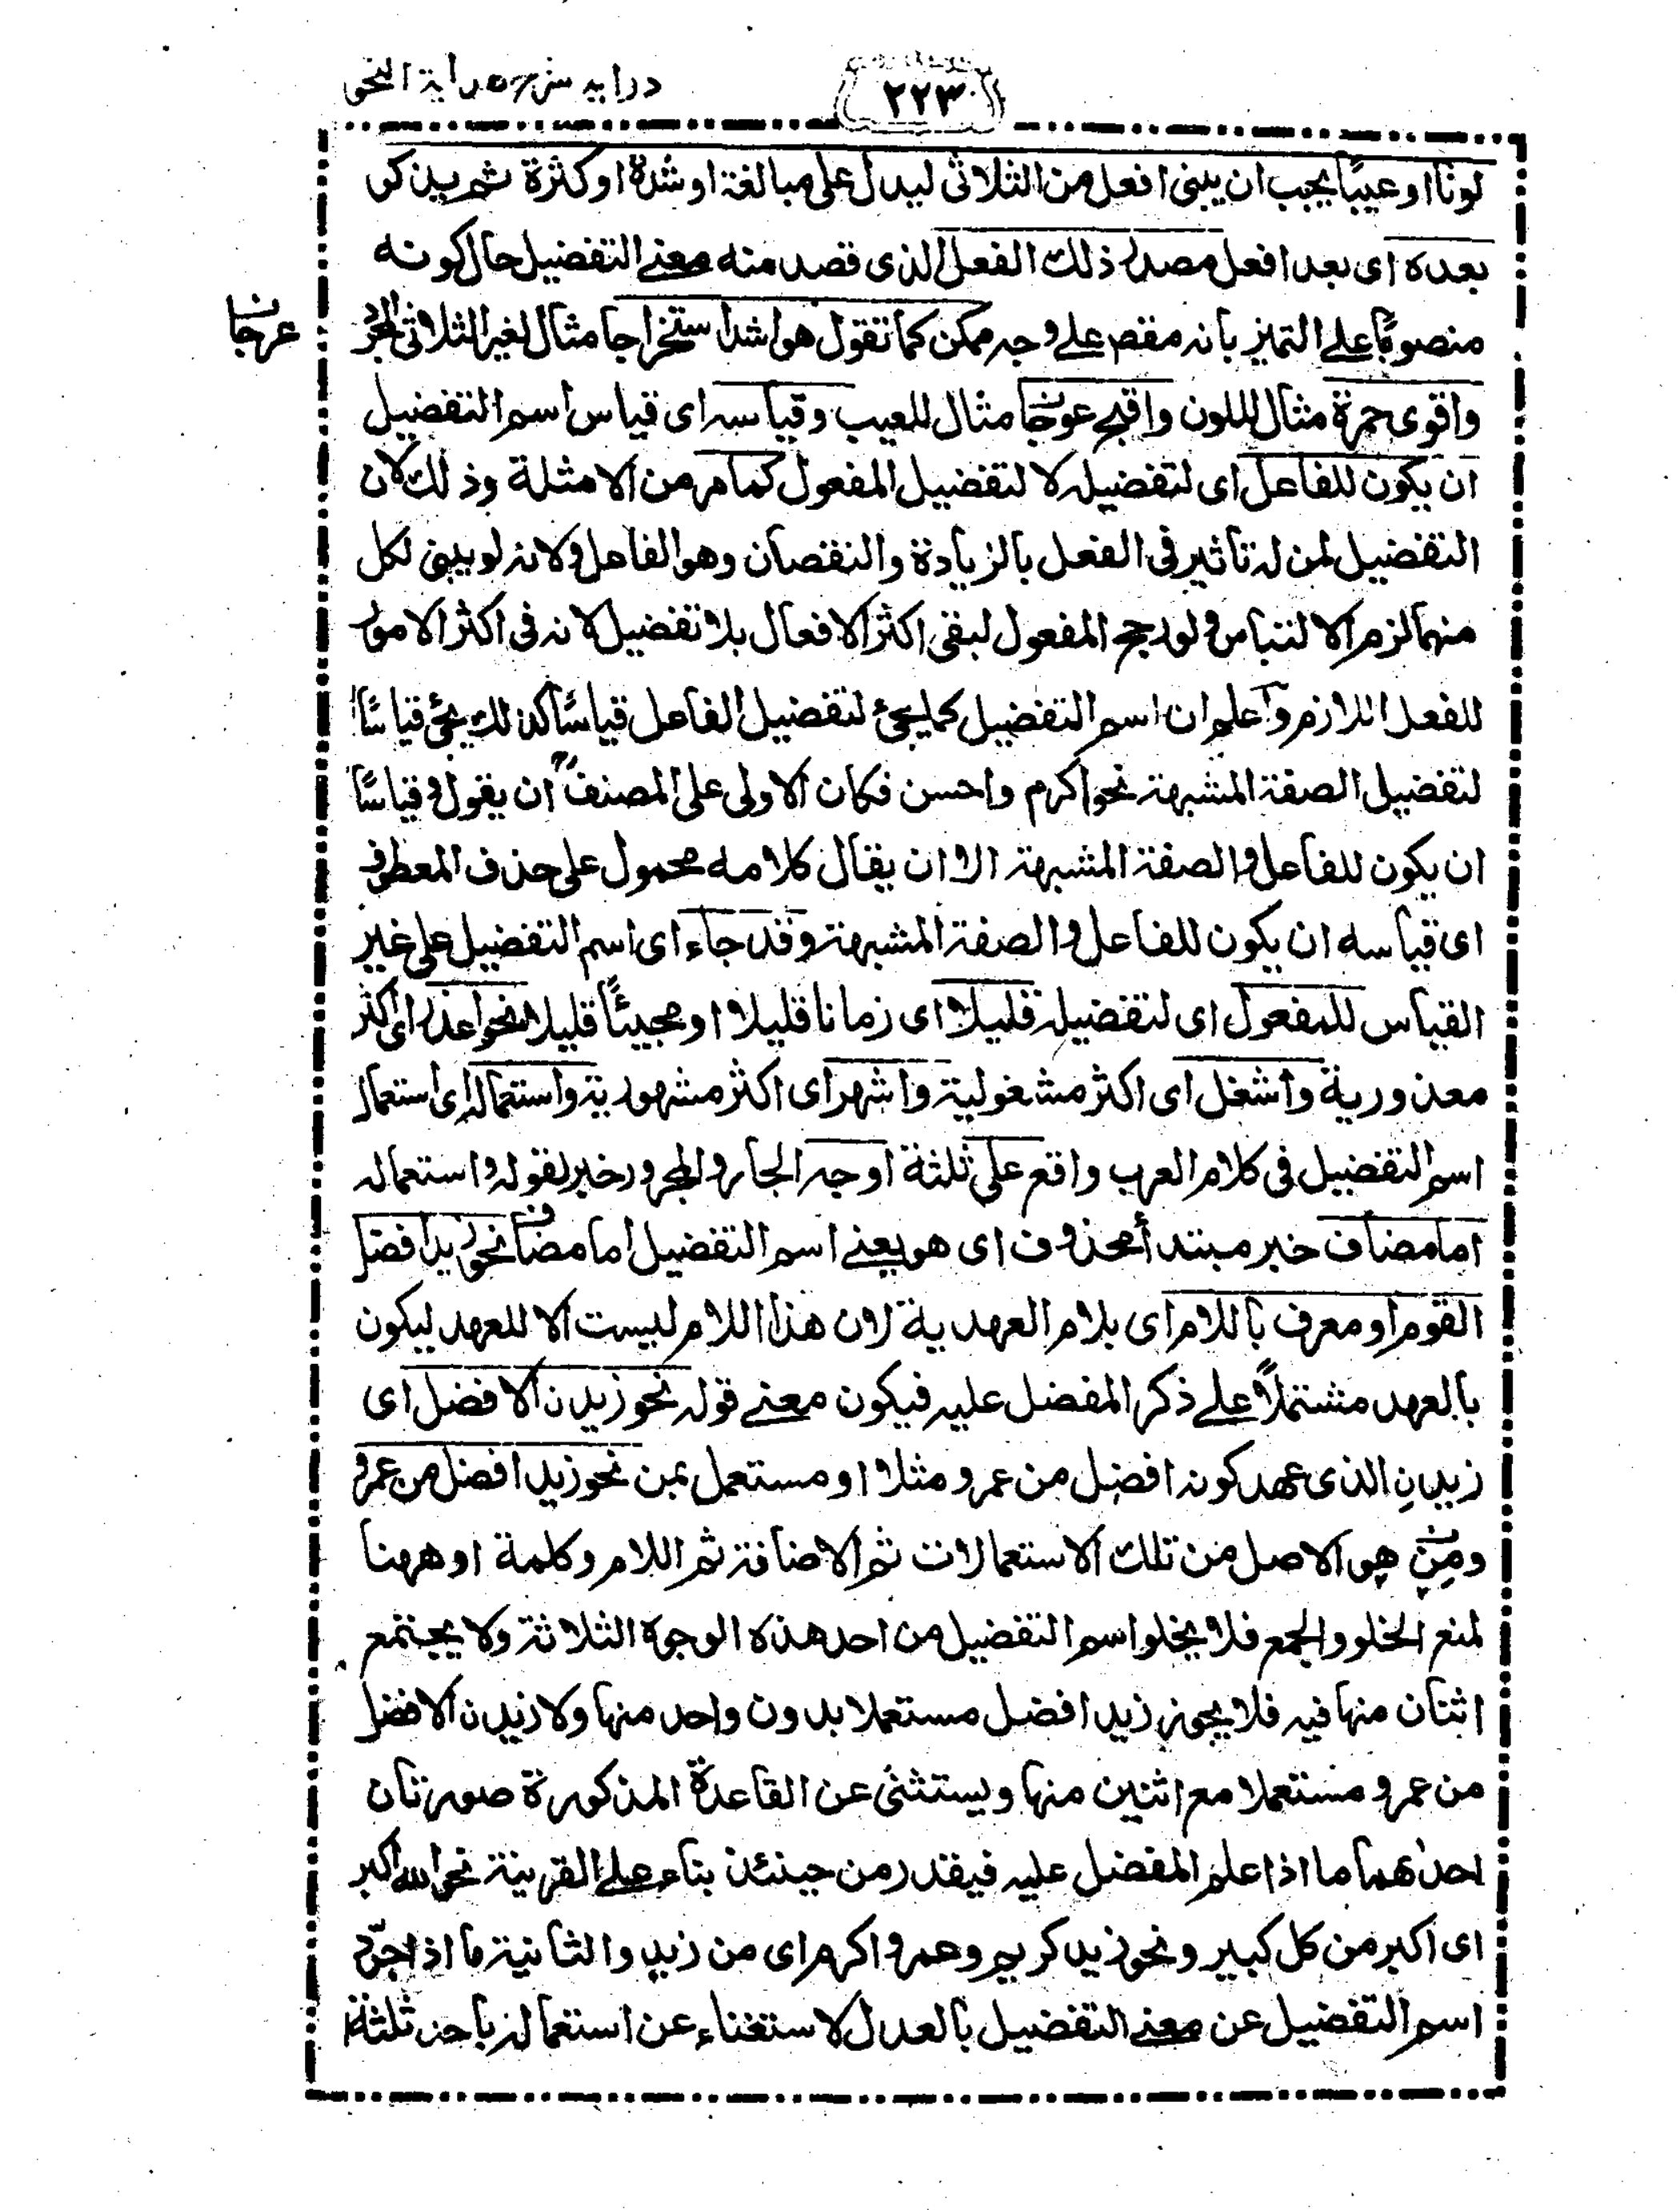 درایه شرح هدایة النحو
٢٢٣
لونا او عیبًا یجب ان یبنی افعل من الثلاثی لیدل علی مبالغة او شدة او کثرة ثم یذکر
بعده ای بعد افعل مصدر ذلك الفعل الذی قصد منه معنے التفضیل حال کونه
منصوبًا علے التمیز بانه مقصر علے وجه ممکن کما تقول هو اشد استخراجا مثال لغیر الثلاثی المجرد
عرجا
واقوی حمرة مثال للون واقبح عرجا مثال للعیب وقیاسه ای قیاس اسم التفضیل
ان یکون للفاعل ای لتفضیله لا لتفضیل المفعول کما مر من الامثلة وذلك لان
التفضیل لمن له تاثیر فی الفعل بالزیادة والنقصان وهو الفاعل ولانه لو یبنی لکل
منهما لزم الالتباس ولو رجح المفعول لبقی اکثر الافعال بلا تفضیل لانه فی اکثر الامور
للفعل اللازم واعلم ان اسم التفضیل کما یجئ لتفضیل الفاعل قیاسًا کذلك یجئ قیاسًا
لتفضیل الصفة المشبهة نحو اکرم واحسن فکان الاولی علی المصنف ان یقول وقیاسًا
ان یکون للفاعل والصفة المشبهة الا ان یقال کلامه محمول علی حذف المعطوف
ای قیاسه ان یکون للفاعل والصفة المشبهة وقد جاء ای اسم التفضیل علی غیر
القیاس للمفعول ای لتفضیله قلیلا ای زمانا قلیلا او مجیئًا قلیلا نحو اعذر ای اکثر
معذوریة واشغل ای اکثر مشغولیة واشهر ای اکثر مشهوریة واستعماله ای استعمال
اسم التفضیل فی کلام العرب واقع علی ثلثة اوجه الجار والمجرور خبر لقوله واستعماله
اما مضاف خبر مبتدأ محذوف ای هو یعنے اسم التفضیل اما مضاف نحو زید افضل
القوم او معرف باللام ای بلام العهدیة لان هذا اللام لیست الا للعهد لیکون
بالعهد مشتملًا علے ذکر المفضل علیه فیکون معنے قوله نحو زیدن الافضل ای
زیدنِ الذی عهد کونه افضل من عمرو مثلا او مستعمل بمن نحو زید افضل من عمرو
ومِن هی الاصل من تلك الاستعمالات ثم الاضافة ثم اللام وکلمة او ههنا
لمنع الخلو والجمع فلا یخلوا اسم التفضیل من احد هذه الوجوه الثلاثة ولا یجتمع
اثنان منها فیه فلا یجوز زید افضل مستعملا بدون واحد منها ولا زیدن الافضل
من عمرو مستعملا مع اثنین منها ویستثنی عن القاعدة المذکورة صورتان
احدٰهما ما اذا علم المفضل علیه فیقدر من حینئذ بناء علے القرینة نحو الله اکبر
ای اکبر من کل کبیر ونحو زید کریم وعمرو اکرم ای من زید والثانیة ما اذا جرّد
اسم التفضیل عن معنے التفضیل بالعدل لاستغناء عن استعماله باحد ثلثة